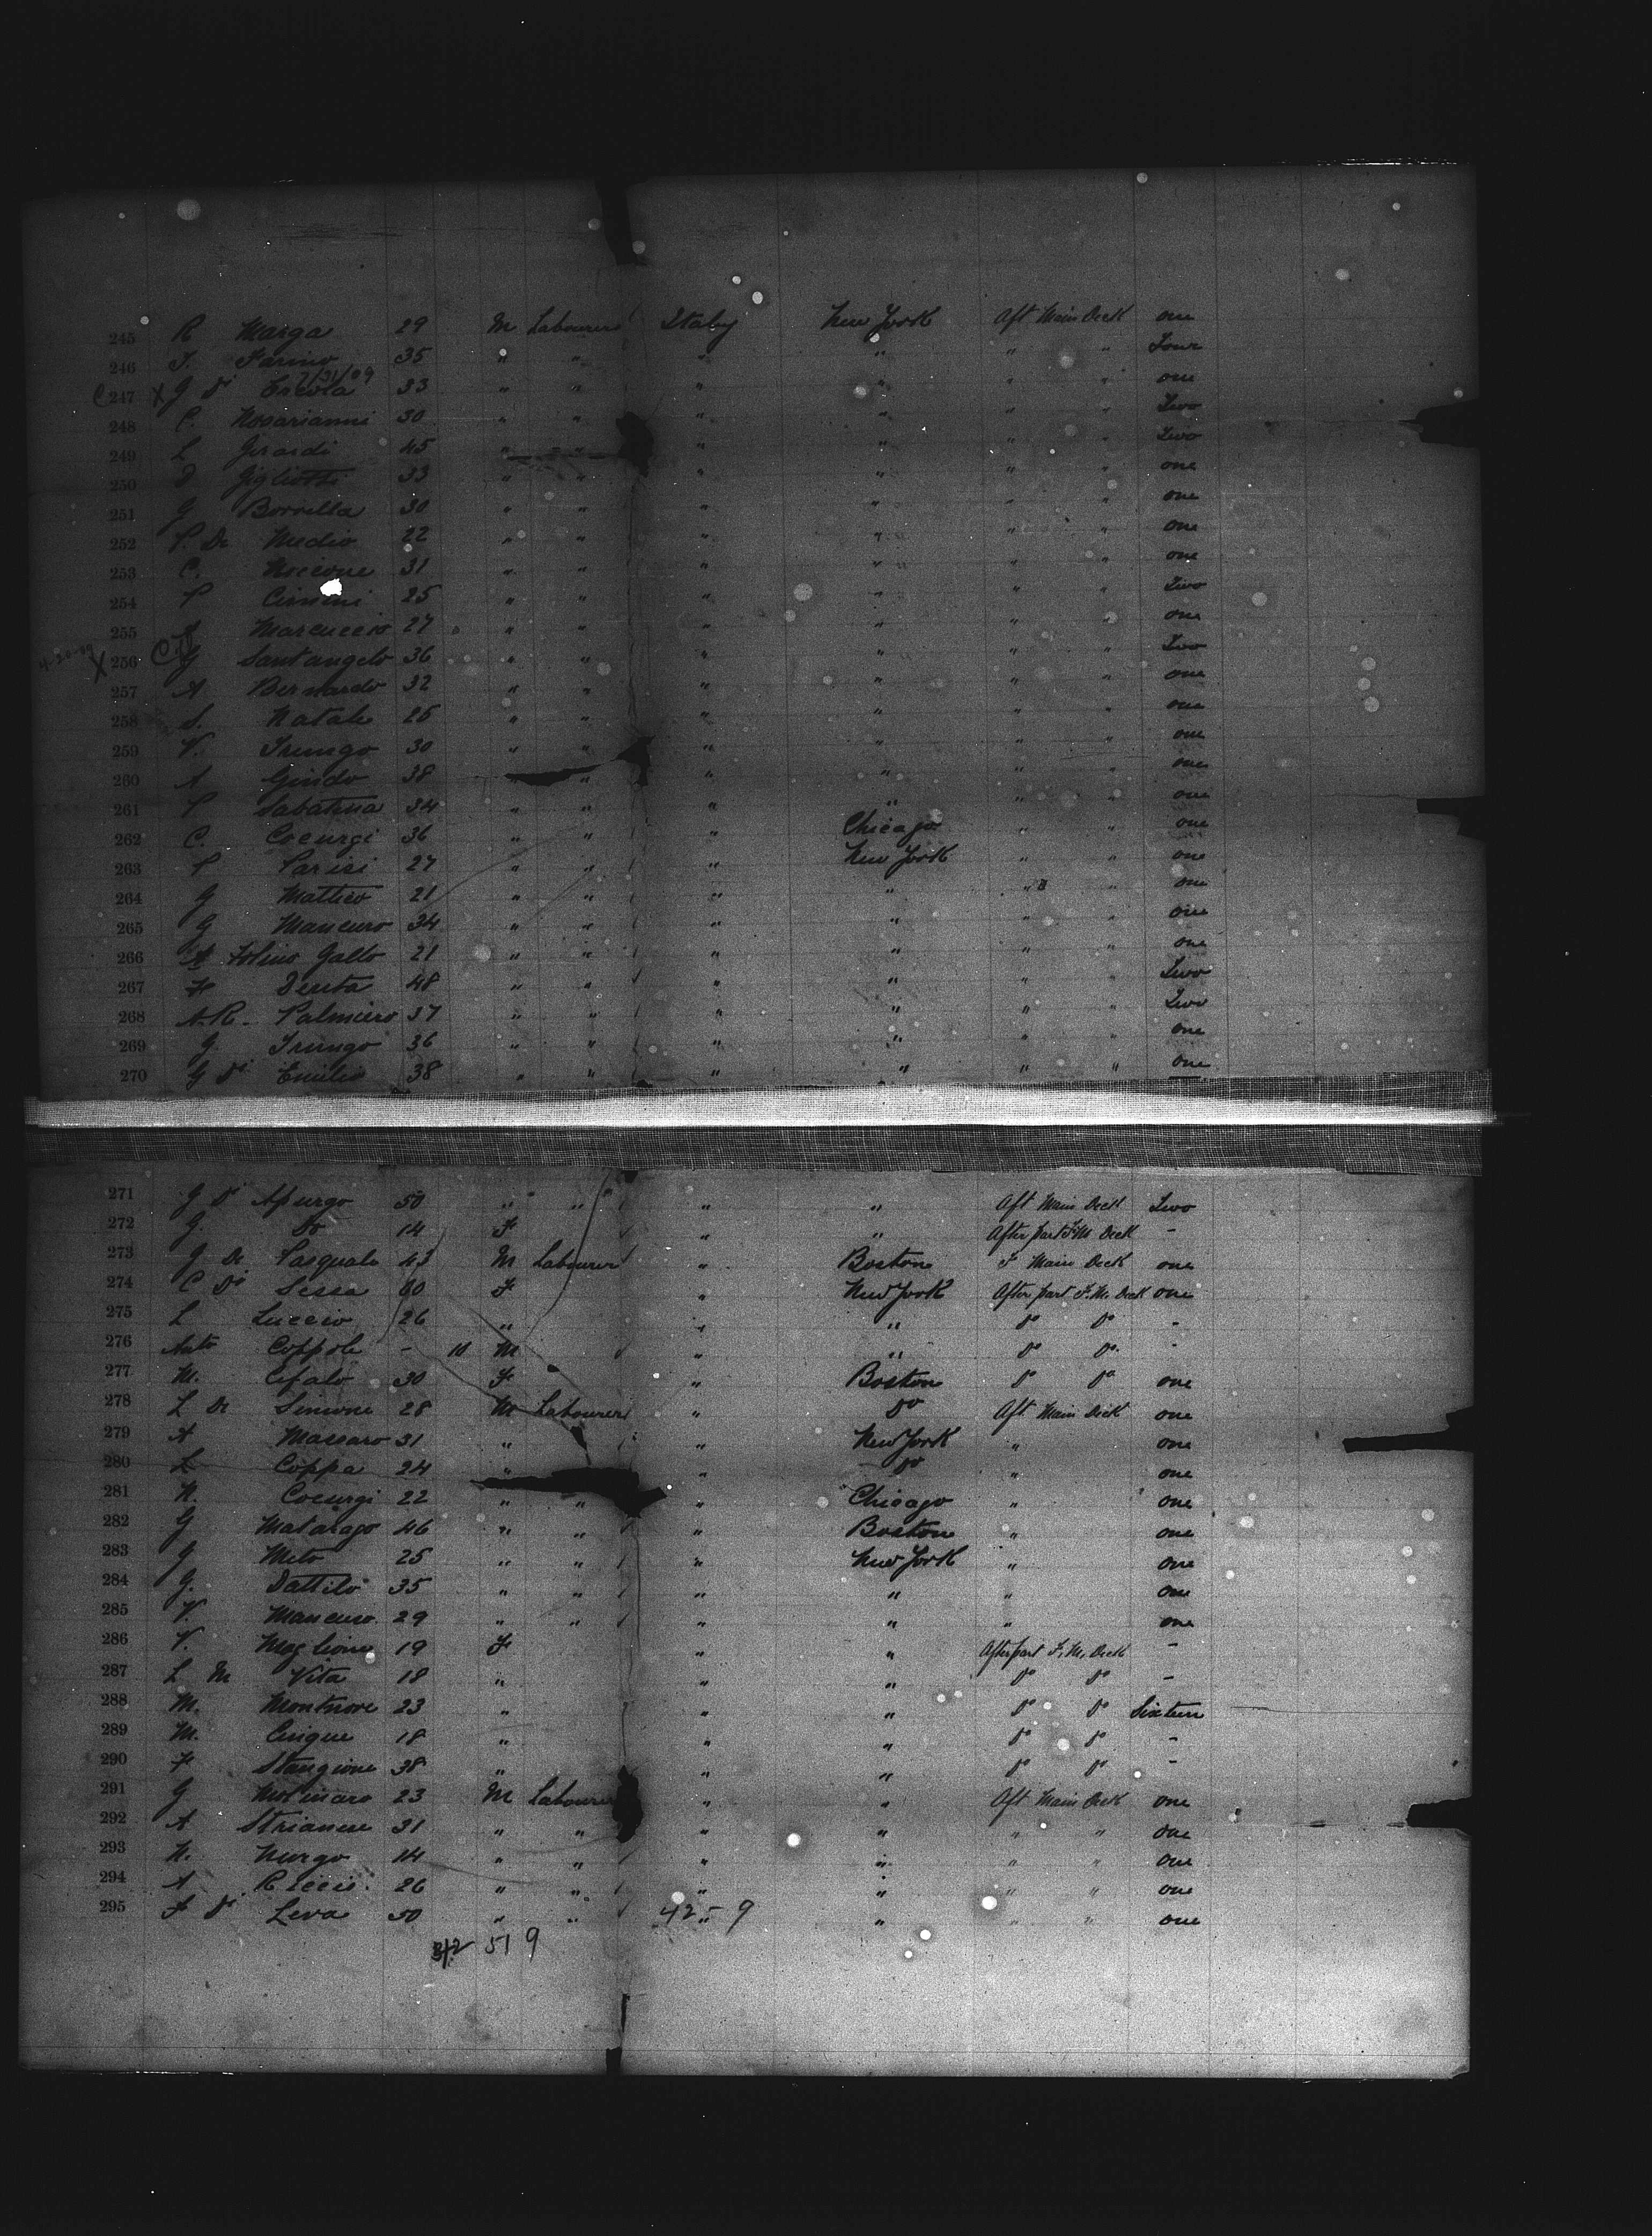 245 R Marga 29 M Labourer Italy New York Aft Main Deck one
246 F. Farino 35 " " " " " " Four
7/31/09
C 247 X G Di Ercola 33 " " " " " " one
248 C. Nosarianni 30 " " " " " " Two
249 L Girardi 45 " " " " " " Two
250 D Gigliotti 33 " " " " " " one
251 G Borrella 30 " " " " " " one
252 P. De Medio 22 " " " " " " one
253 C. Noccone 31 " " " " " " one
254 P 25 " " " " " " Two
255 A Marcuccio 27 " " " " " " one
4-20-09 X 256 C G Santangelo 36 " " " " " " Two
257 A Bernardo 32 " " " " " " one
258 S. Natale 25 " " " " " " one
259 V. Trungo 30 " " " " " " one
260 A Gindo 38 " " " " " " one
261 P Sabatina 34 " " " " " " one
262 C. Cocurgi 36 " " " Chicago " " one
263 P Parisi 27 " " " New York " " one
264 G Matteo 21 " " " " " " one
265 G Mancuso 34 " " " " " " one
266 A Folino Gallo 21 " " " " " " one
267 F Derita 48 " " " " " " Two
268 A.R. Palmiero 37 " " " " " " Two
269 G. Trungo 36 " " " " " " one
270 G Di Emilio 38 " " " " " " one
271 G Di Apurgo 50 " " " " Aft Main Deck Two
272 G. Do 14 F " " After part F M Deck -
273 G De Pasquale 43 M Labourer " Boston F Main Deck one
274 C Di Sessa 60 F " New York After part F. M. Deck one
275 L Luccio 26 " " " Do Do -
276 Anto Coppola - 10 M " " Do Do -
277 M. Cefalo 30 F " Boston Do Do one
278 L De Simone 28 M Labourer " Do Aft Main Deck one
279 A Massaro 31 " " New York " one
280 L Coppa 24 " " Do " one
281 N. Cocurgi 22 " " " Chicago " one
282 G Matarago 46 " " " Boston " one
283 G Meto 25 " " " New York " one
284 G. Dattilo 35 " " " " " one
285 V. Mancuso 29 " " " " " one
286 V. Maglione 19 F " " After part F. M. Deck -
287 L M Vita 18 " " " Do Do -
288 M. Montuore 23 " " " Do Do Sixteen
289 M. Cinque 18 " " " Do Do -
290 F Stangione 38 " " " Do Do -
291 G Molinaro 23 M Labourer " " Aft Main Deck one
292 A Strianese 31 " " " " " " one
293 N. Nurgo 14 " " " " " " one
294 A Riccio 26 " " " " " " one
295 F Di Leva 50 " " 42 - 9 " " " one
342 51 9